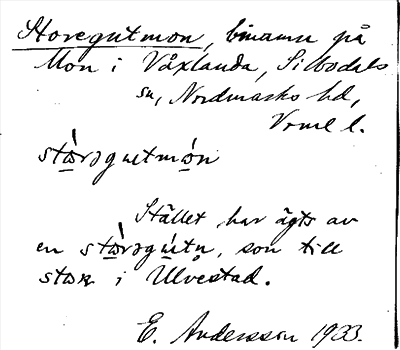 Storegutmon, binamn på
Mon i Våxlanda, Silbodals
sn, Nordmarks hd,
Vrml l.
stɷ̀rəgutmɷ́n
Stället har ägts av
en stɷ̀rəgútn, som till
i Ulvestad.
E. Andersson 1933.